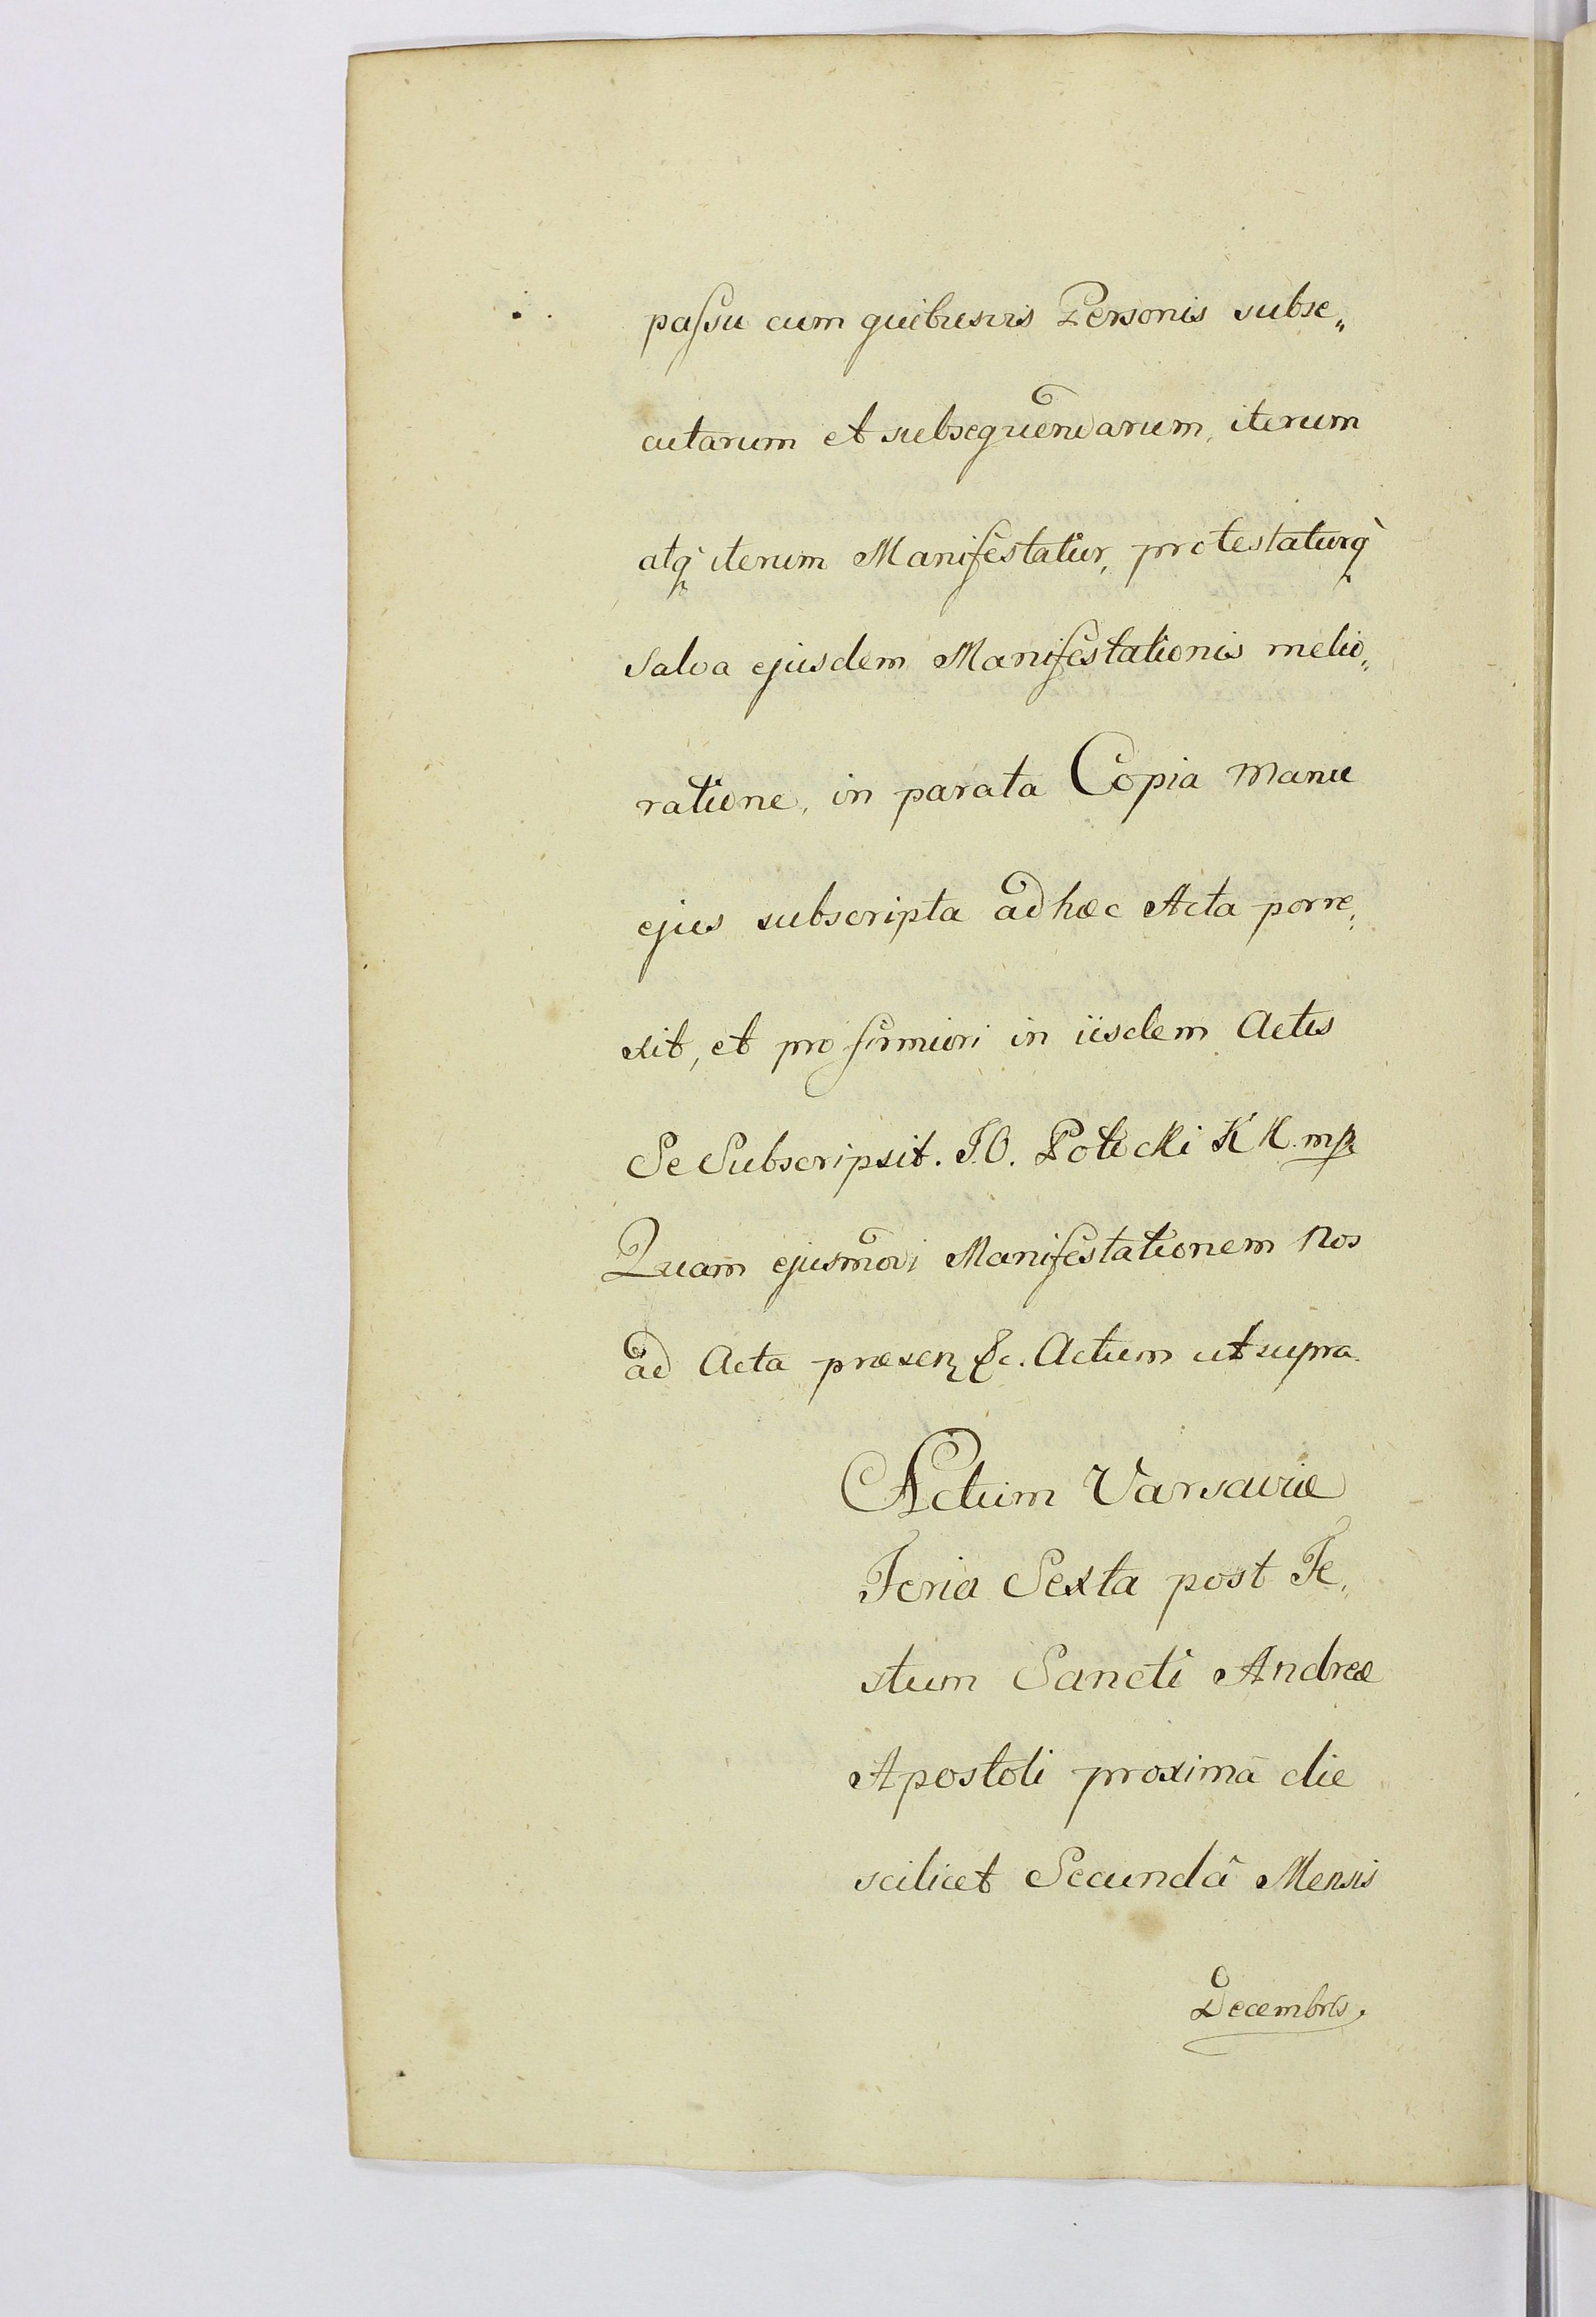 passu cum quibusvis Personis subse„
cutarum et subsequendarum, iterum
atq̀ iterum Manifestatur, protestaturq̀
salva ejusdem Manifestationis melio„
ratione, in parata Copia manu
ejus subscripta ad hæc Acta porre„
xit, et pro firmiori in iisdem Actis
Se Subscripsit. J. O. Potocki K K mp
Quam ejusmodi Manifestationem Nos
ad Acta præsen &c. Actum ut supra.
Actum Varsaviæ
Feria Sexta post Fe„
stum Sancti Andreæ
Apostoli proximâ die
scilicet Secundâ Mensis
Decembris,